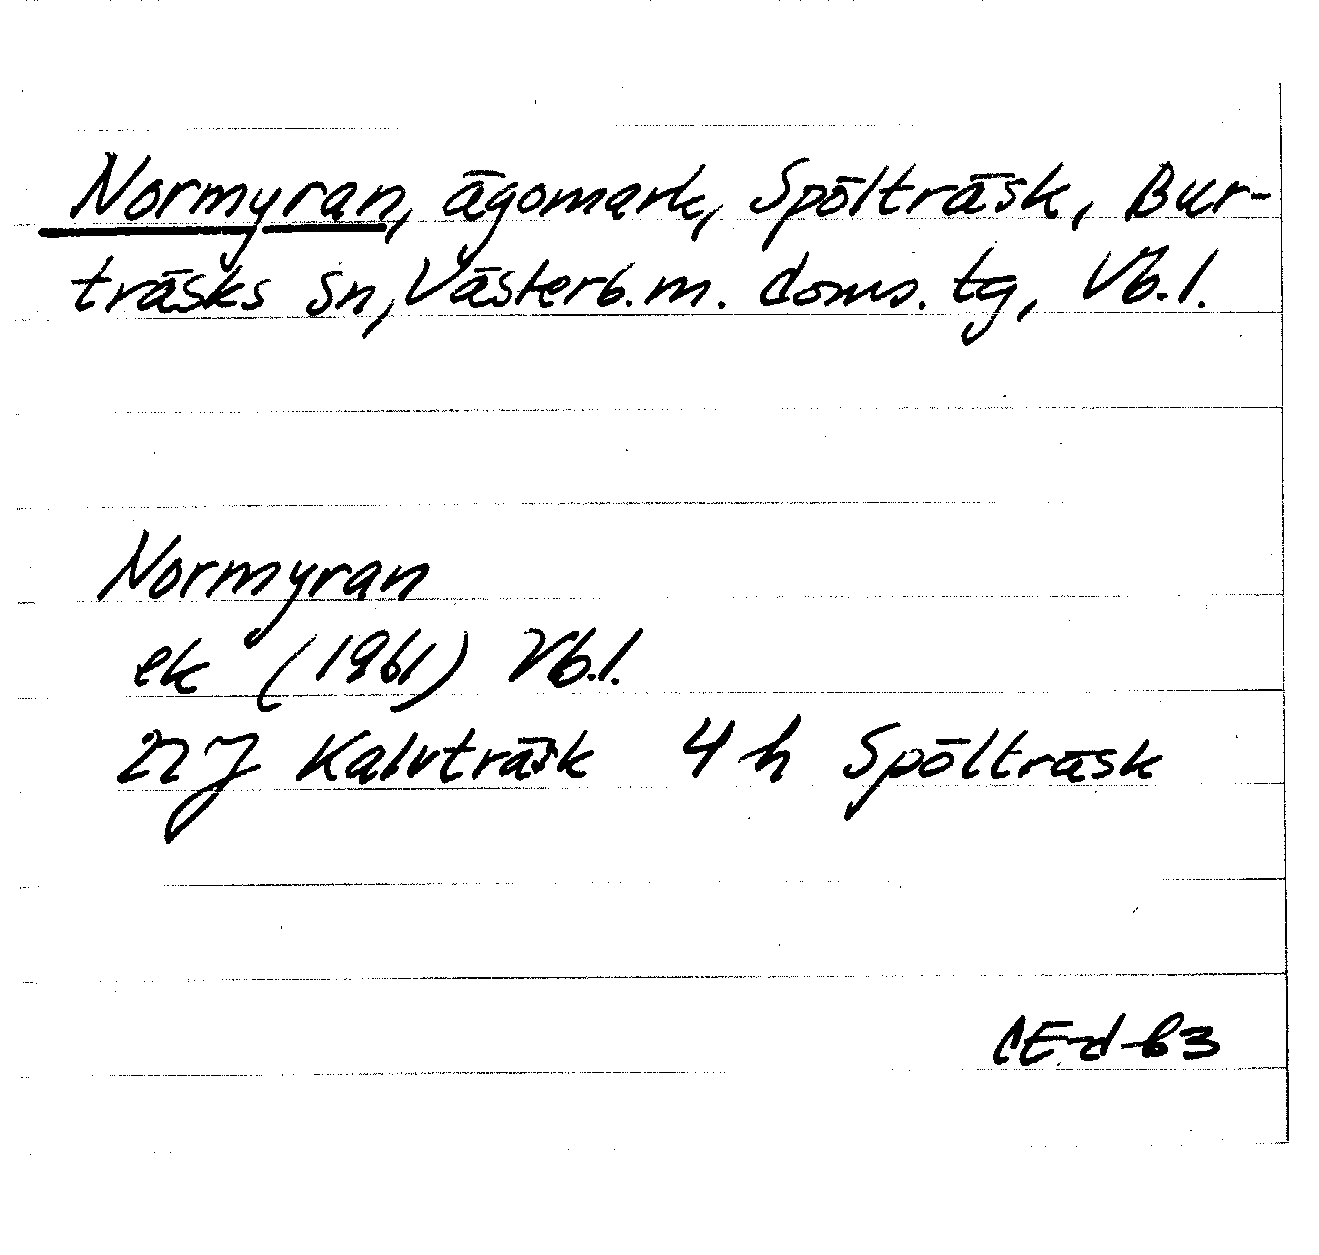 Normyran, ägomark, Spölträsk, Bur-
träsks sn, Västerb.m. doms. tg, Vb.l.
Normyran
ek (1961) Vb.l.
22 J Kalvträsk 4 h Spölträsk
CE-d-63